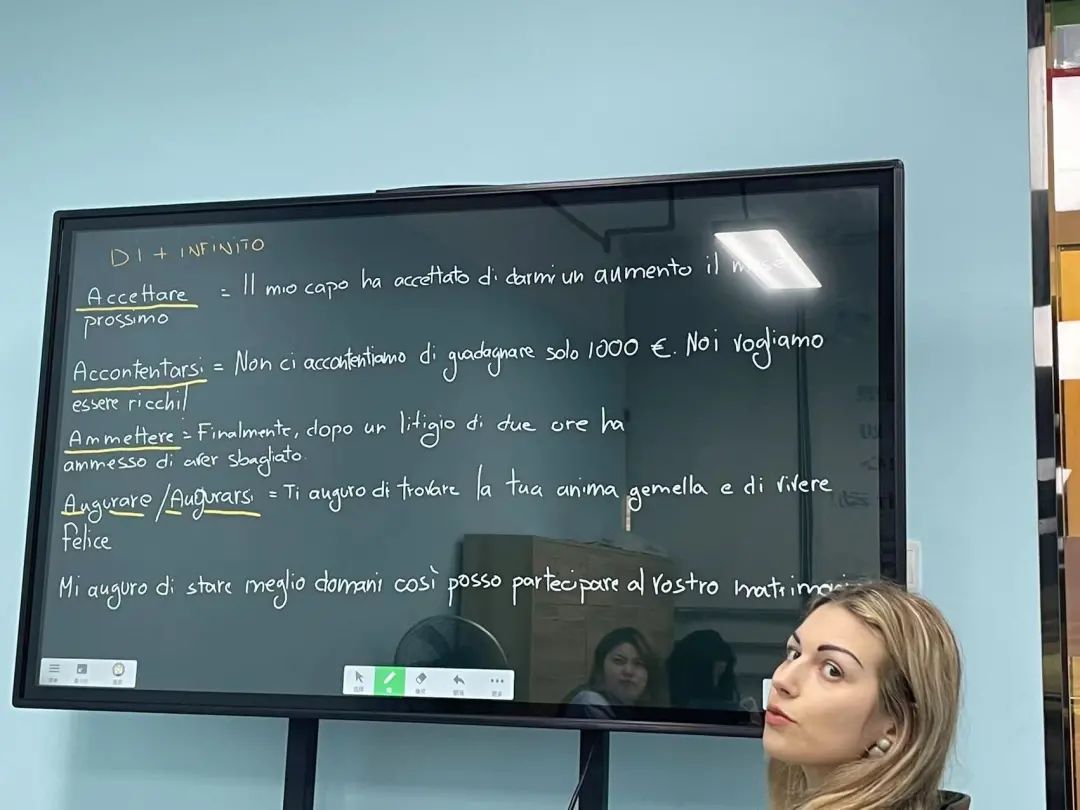 DI + INFINITO
Accettare = Il mio capo ha accettato di darmi un aumento il mese
prossimo
Accontentarsi = Non ci accontentiamo di guadagnare solo 1000 €. Noi vogliamo
essere ricchi!
Ammettere = Finalmente, dopo un litigio di due ore ha
ammesso di aver sbagliato.
Augurare / Augurarsi = Ti auguro di trovare la tua anima gemella e di vivere
felice
Mi auguro di stare meglio domani così posso partecipare al vostro
选择 笔 橡皮 撤销 更多